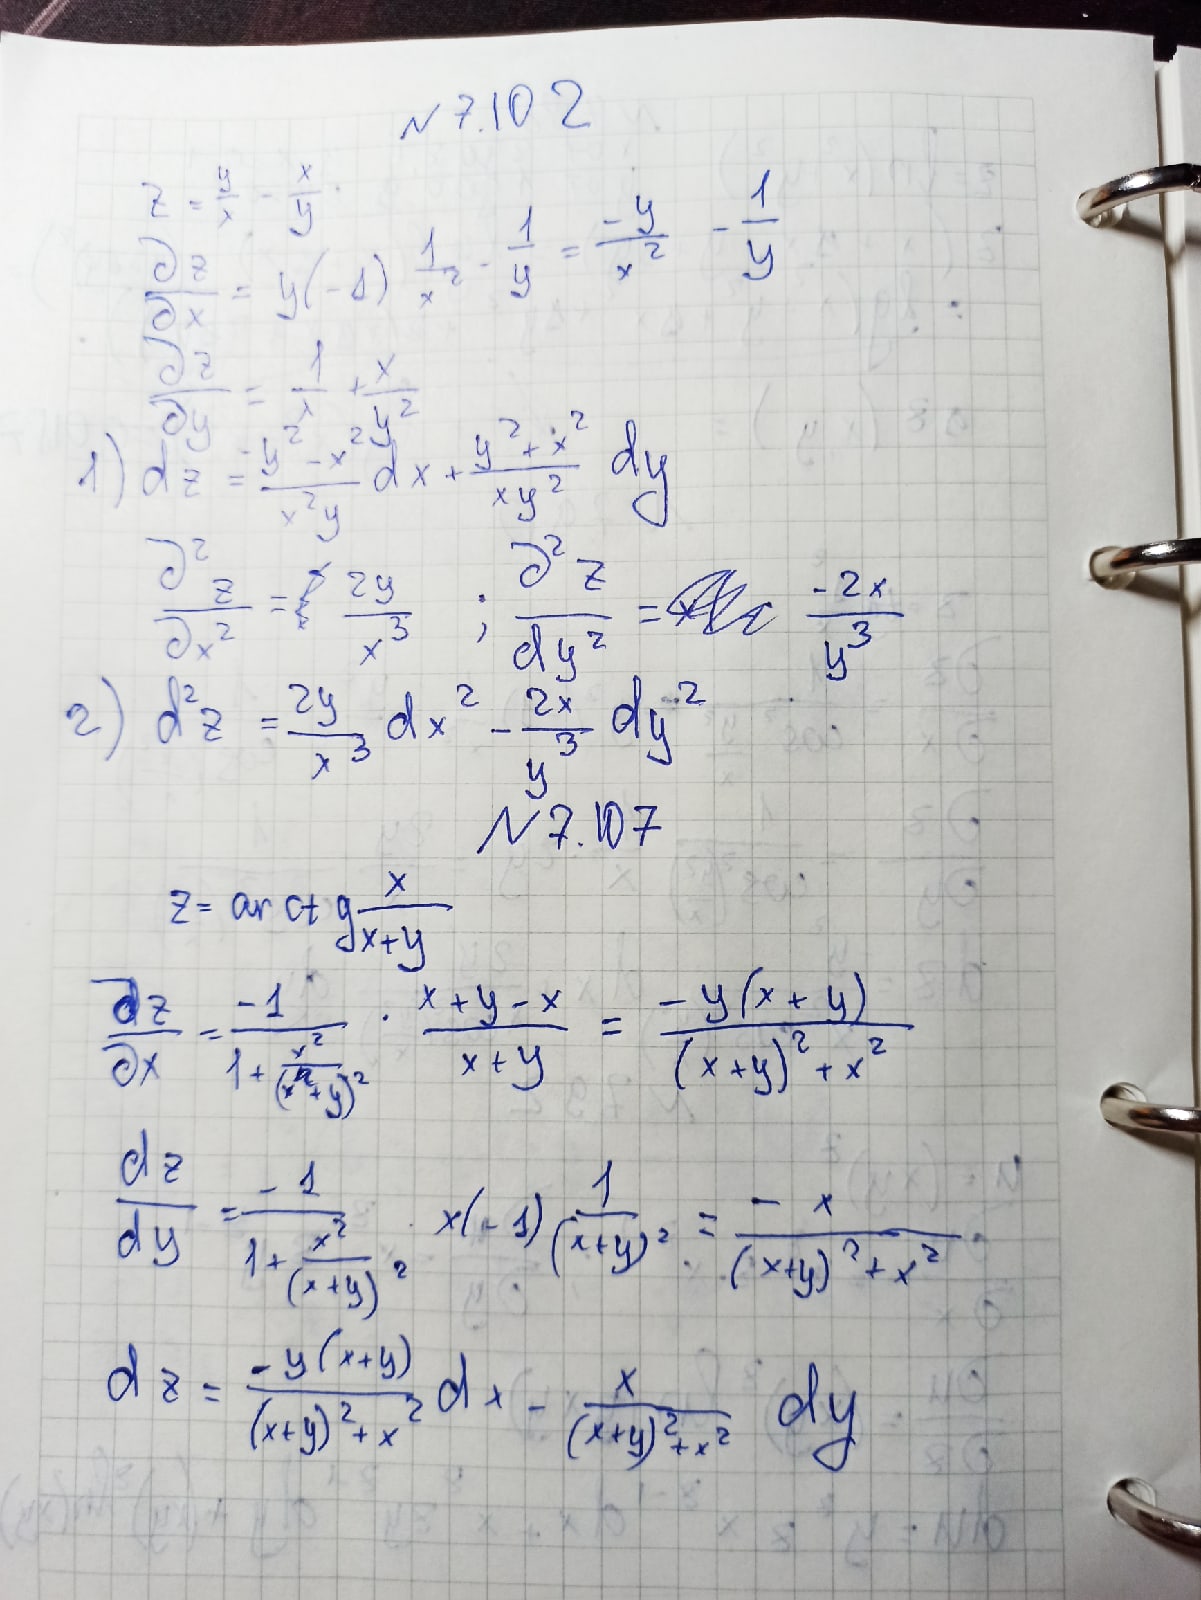 N 7.102
z = y/x - x/y
∂z/∂x = y(-1) 1/x² - 1/y = -y/x² - 1/y
∂z/∂y = 1/x + x/y²
1) dz = (-y² - x²)/(x²y) dx + (y² + x²)/(xy²) dy
∂²z/∂x² = 2y/x³ ; ∂²z/dy² = -2x/y³
2) d²z = 2y/x³ dx² - 2x/y³ dy²
N 7.107
z = arctg x/(x+y)
dz/∂x = -1/(1 + x²/(x+y)²) · (x+y-x)/(x+y) = -y(x+y)/((x+y)² + x²)
dz/dy = -1/(1 + x²/(x+y)²) x(-1) 1/(x+y)² = -x/((x+y)² + x²)
dz = -y(x+y)/((x+y)² + x²) dx - x/((x+y)² + x²) dy